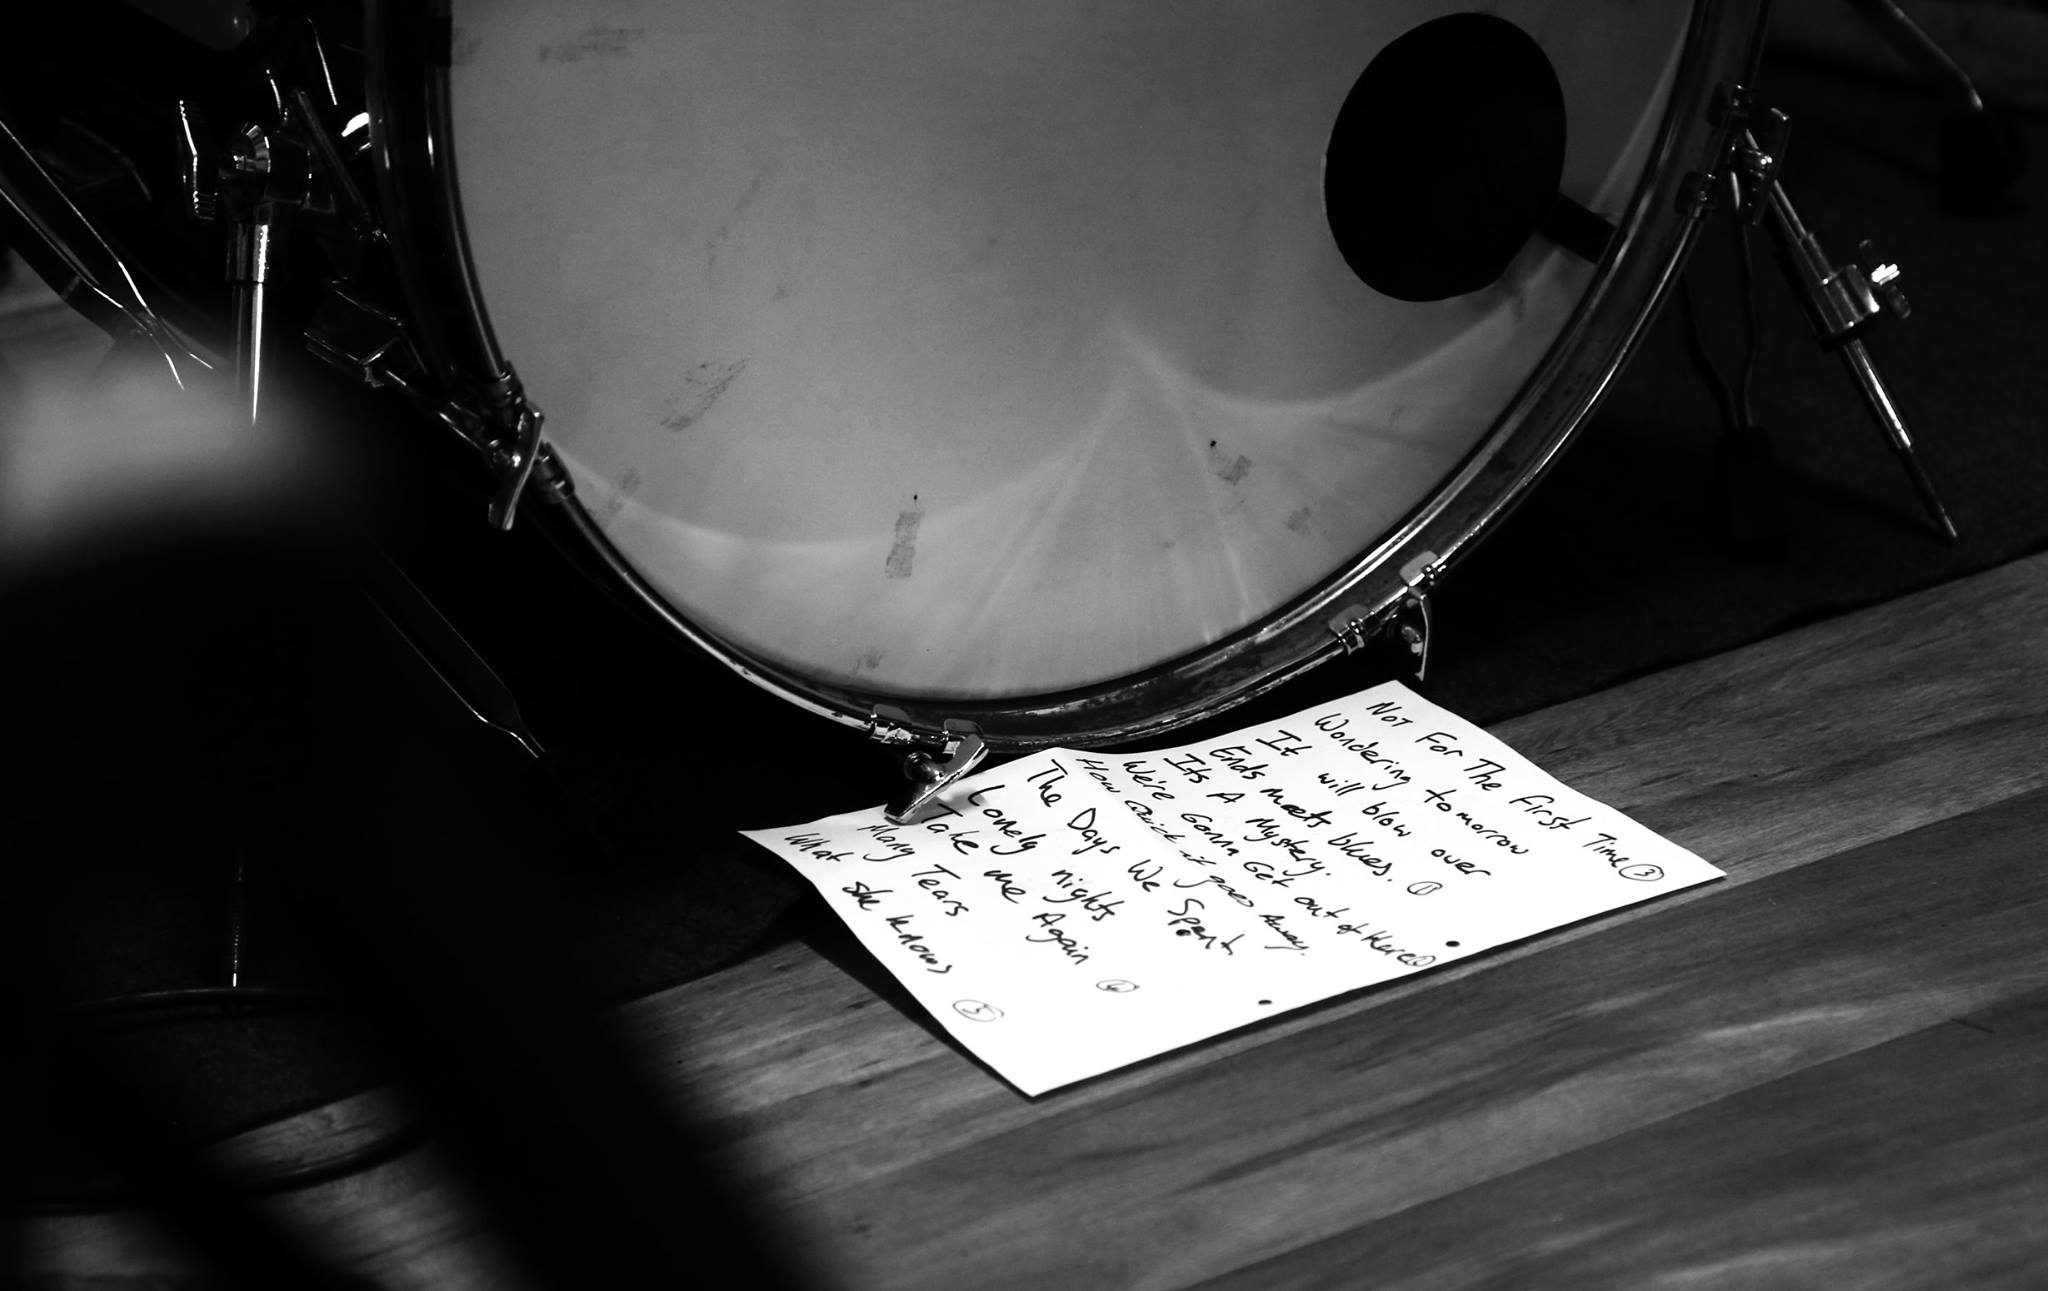 Not For The First Time ③
Wondering tomorrow
It will blow over
Ends meets blues. ①
Its A Mystery.
We're Gonna Get out of Here
How Quick it goes Away.
The Days We Spent,
Lonely nights
Take me Again ④
Many Tears
What she knows ⑤